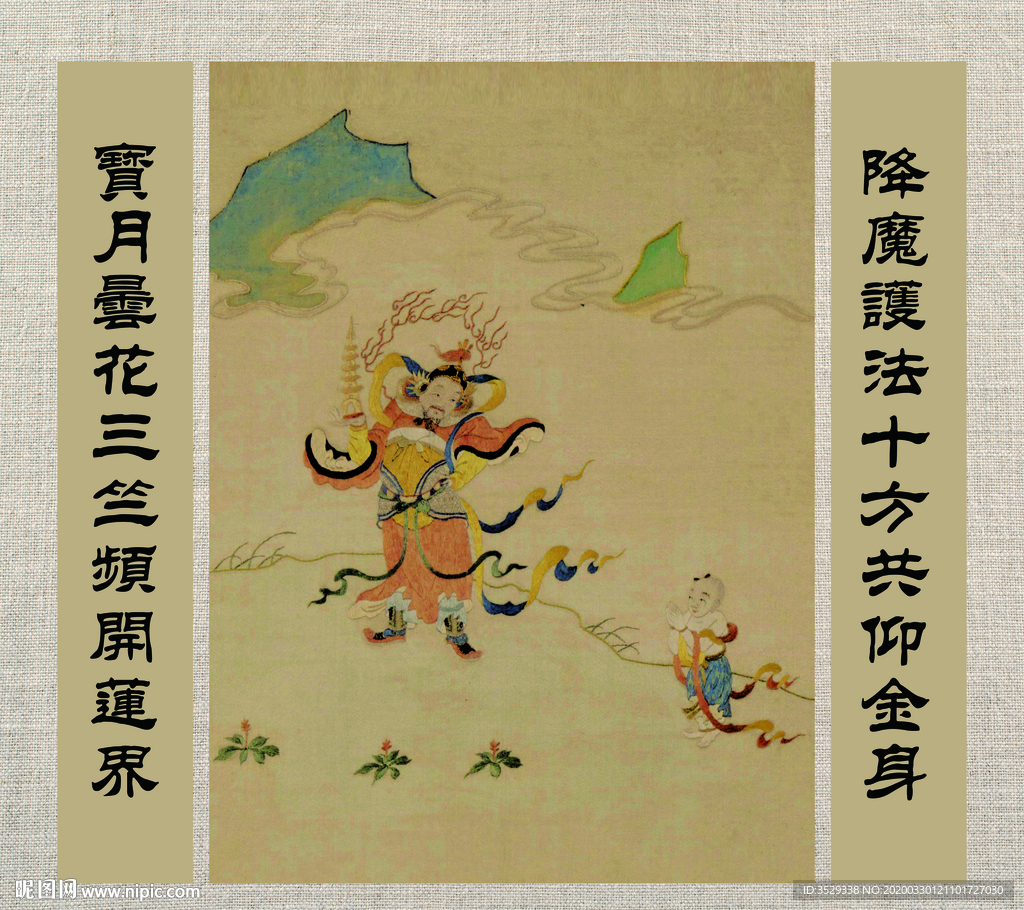 降魔護法十方共仰金身
寶月曇花三竺頻開蓮界
昵图网 www.nipic.com
ID:3529338 NO:20200330121101727030